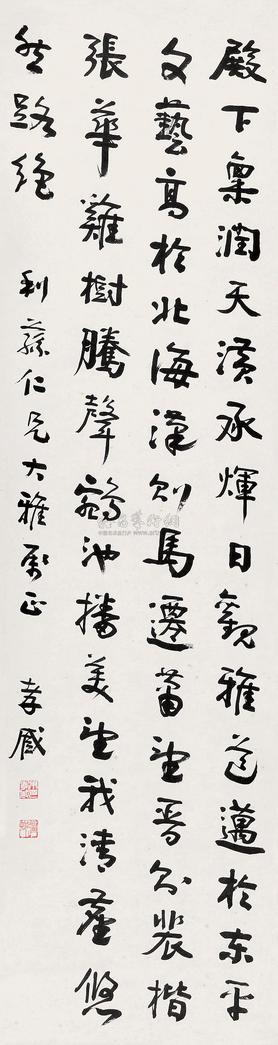 殿下稟潤天潢承煇日觀雅道邁於東平
文藝高於北海漢則馬遷蕭望晉則裴楷
張華雞樹騰聲鶴池播美望我清塵悠
然路絕
利蓀仁兄大雅屬正 孝臧